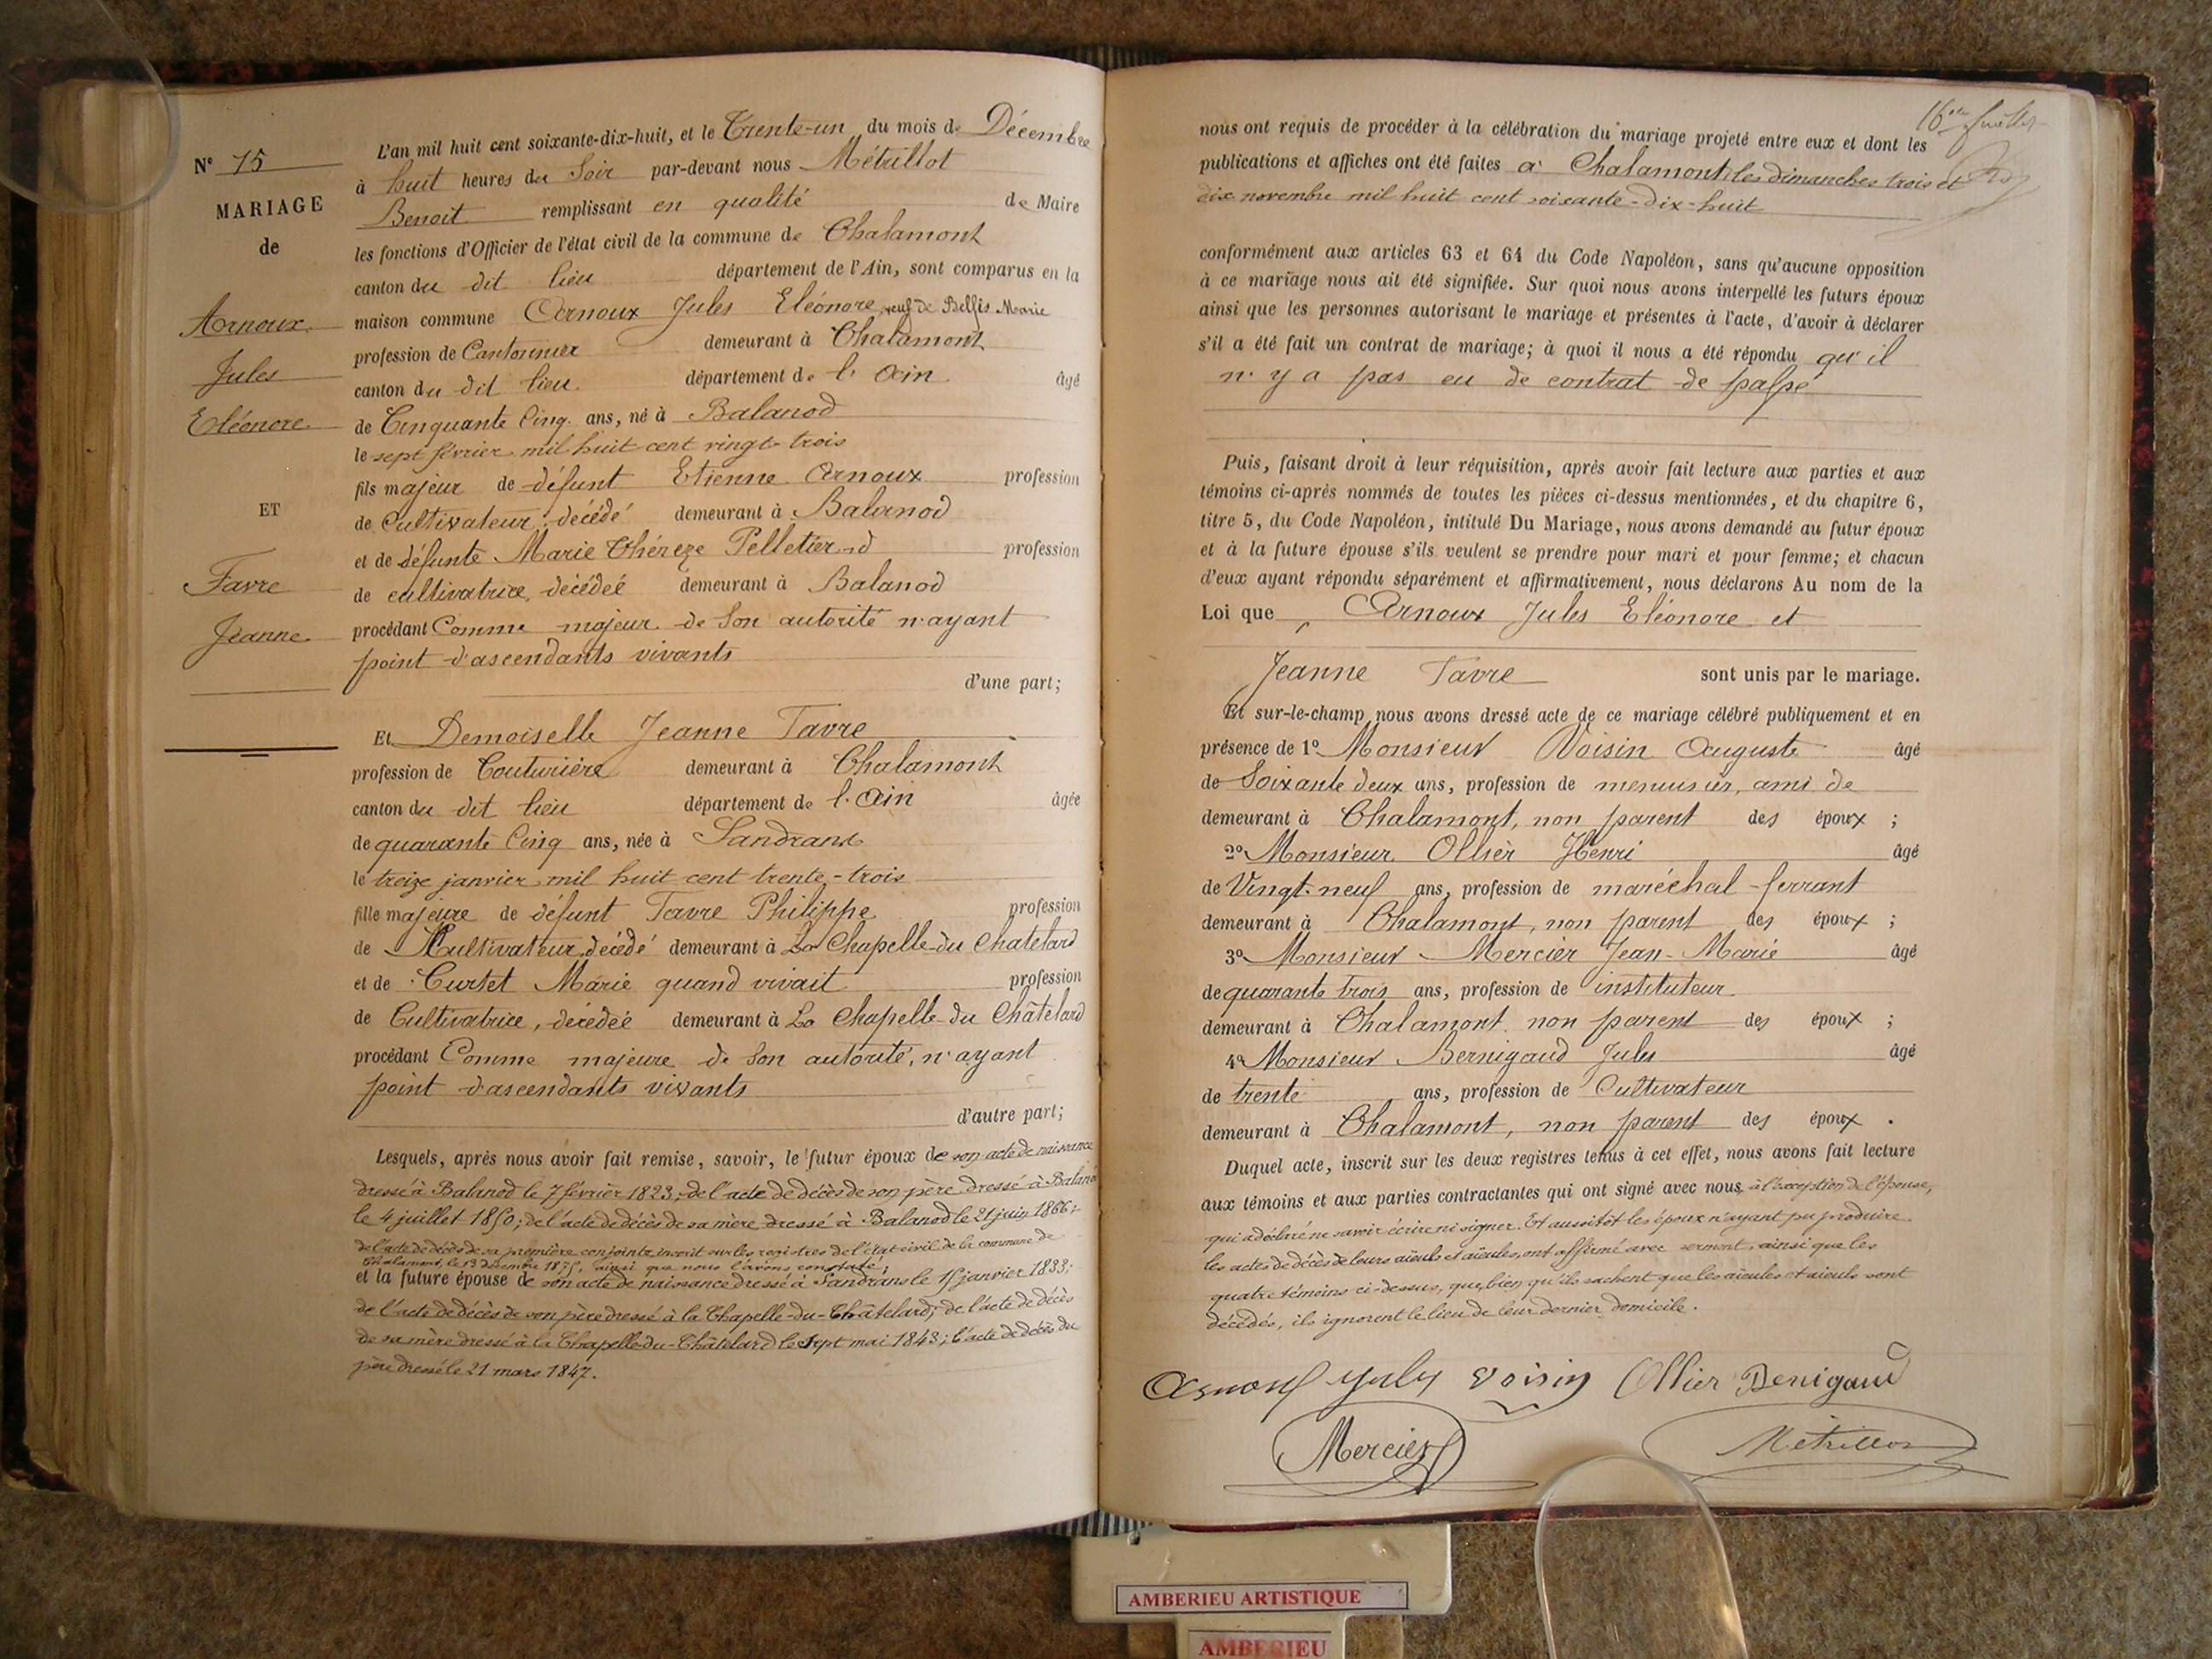 N° 15
MARIAGE
de
Arnoux
Jules
Eléonore
ET
Favre
Jeanne
L'an mil huit cent soixante-dix-huit, et le Trente-un du mois de Décembre
à huit heures du Soir par-devant nous Métrillot
Benoit remplissant en qualité de Maire
les fonctions d'Officier de l'état civil de la commune de Chalamont
canton du dit lieu département de l'Ain, sont comparus en la
maison commune Arnoux Jules Eléonore, veuf de Marie
profession de Cantonnier demeurant à Chalamont
canton du dit lieu département de l'Ain âgé
de Cinquante Cinq ans, né à Balanod
le sept février mil huit cent vingt-trois
fils majeur de défunt Etienne Arnoux profession
de Cultivateur, décédé demeurant à Balanod
et de défunte Marie Thérèze Pelletier profession
de cultivatrice, décédeé demeurant à Balanod
procédant Comme majeur de Son autorité n'ayant
point d'ascendants vivants
d'une part;
Et Demoiselle Jeanne Favre
profession de Couturière demeurant à Chalamont
canton du dit lieu département de l'Ain âgée
de quarante Cinq ans, née à Sandrans
le treize janvier mil huit cent trente-trois
fille majeure de défunt Favre Philippe profession
de Cultivateur, décédé demeurant à La Chapelle-du Chatelard
et de Curtet Marie quand vivait profession
de Cultivatrice, décédeé demeurant à La Chapelle-du Châtelard
procédant Comme majeure de Son autorité, n'ayant
point d'ascendants vivants
d'autre part;
Lesquels, après nous avoir fait remise, savoir, le futur époux de son acte de naissance
dressé à Balanod le 7 février 1823; de l'acte de décès de son père dressé à Balanod
le 4 juillet 1850; de l'acte de décès de sa mère dressé à Balanod le 21 juin 1866;
de l'acte de décès de sa première conjointe inscrit sur les registres de l'état-civil de la commune de
Chalamont, le 13 décembre 1875, ainsi que nous l'avons constaté;
et la future épouse de son acte de naissance dressé à Sandrans le 15 janvier 1833;
de l'acte de décès de son père dressé à la Chapelle-du-Châtelard; de l'acte de décès
de sa mère dressé à la Chapelle-du-Châtelard le Sept mai 1843; l'acte de décès du
père dressé le 21 mars 1847.
16me feuillet
nous ont requis de procéder à la célébration du mariage projeté entre eux et dont les
publications et affiches ont été faites à Chalamont les dimanches trois et
dix novembre mil huit cent soixante-dix-huit
conformément aux articles 63 et 64 du Code Napoléon, sans qu'aucune opposition
à ce mariage nous ait été signifiée. Sur quoi nous avons interpellé les futurs époux
ainsi que les personnes autorisant le mariage et présentes à l'acte, d'avoir à déclarer
s'il a été fait un contrat de mariage; à quoi il nous a été répondu qu'il
n'y a pas eu de contrat de passé
Puis, faisant droit à leur réquisition, après avoir fait lecture aux parties et aux
témoins ci-après nommés de toutes les pièces ci-dessus mentionnées, et du chapitre 6,
titre 5, du Code Napoléon, intitulé Du Mariage, nous avons demandé au futur époux
et à la future épouse s'ils veulent se prendre pour mari et pour femme; et chacun
d'eux ayant répondu séparément et affirmativement, nous déclarons Au nom de la
Loi que Arnoux Jules Eléonore et
Jeanne Favre sont unis par le mariage.
Et sur-le-champ nous avons dressé acte de ce mariage célébré publiquement et en
présence de 1° Monsieur Voisin Auguste âgé
de Soixante deux ans, profession de menuisier, ami de
demeurant à Chalamont, non parent des époux ;
2° Monsieur Ollier Henri âgé
de Vingt-neuf ans, profession de maréchal-ferrant
demeurant à Chalamont, non parent des époux ;
3° Monsieur Mercier Jean-Marie âgé
de quarante trois ans, profession de instituteur
demeurant à Chalamont non parent des époux ;
4° Monsieur Bernigaud Jules âgé
de trente ans, profession de Cultivateur
demeurant à Chalamont, non parent des époux .
Duquel acte, inscrit sur les deux registres tenus à cet effet, nous avons fait lecture
aux témoins et aux parties contractantes qui ont signé avec nous, à l'exception de l'épouse,
qui a déclaré ne savoir écrire ni signer. Et aussitôt les époux n'ayant pu produire
les actes de décès de leurs aïeuls et aïeules, ont affirmé avec serment, ainsi que les
quatre témoins ci-dessus, que, bien qu'ils sachent que les aïeules et aïeuls sont
décédés, ils ignorent le lieu de leur dernier domicile.
Arnoux Jules Voisin Ollier Benigaud
Mercier Métrillot
AMBERIEU ARTISTIQUE
AMBERIEU